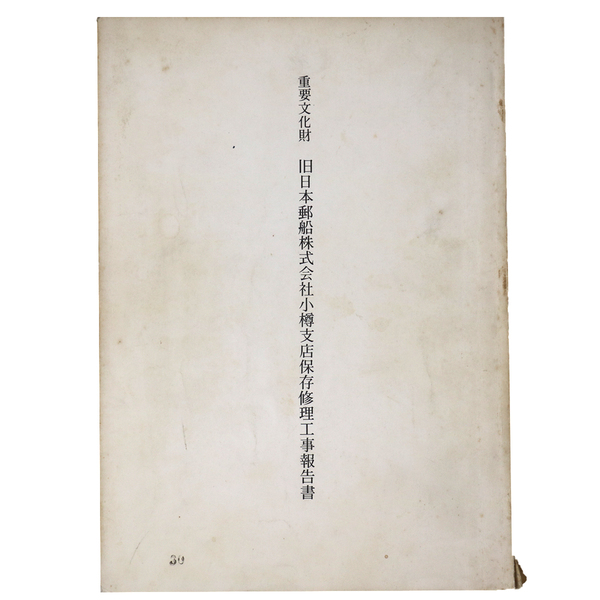 重要文化財　旧日本郵船株式会社小樽支店保存修理工事報告書
30